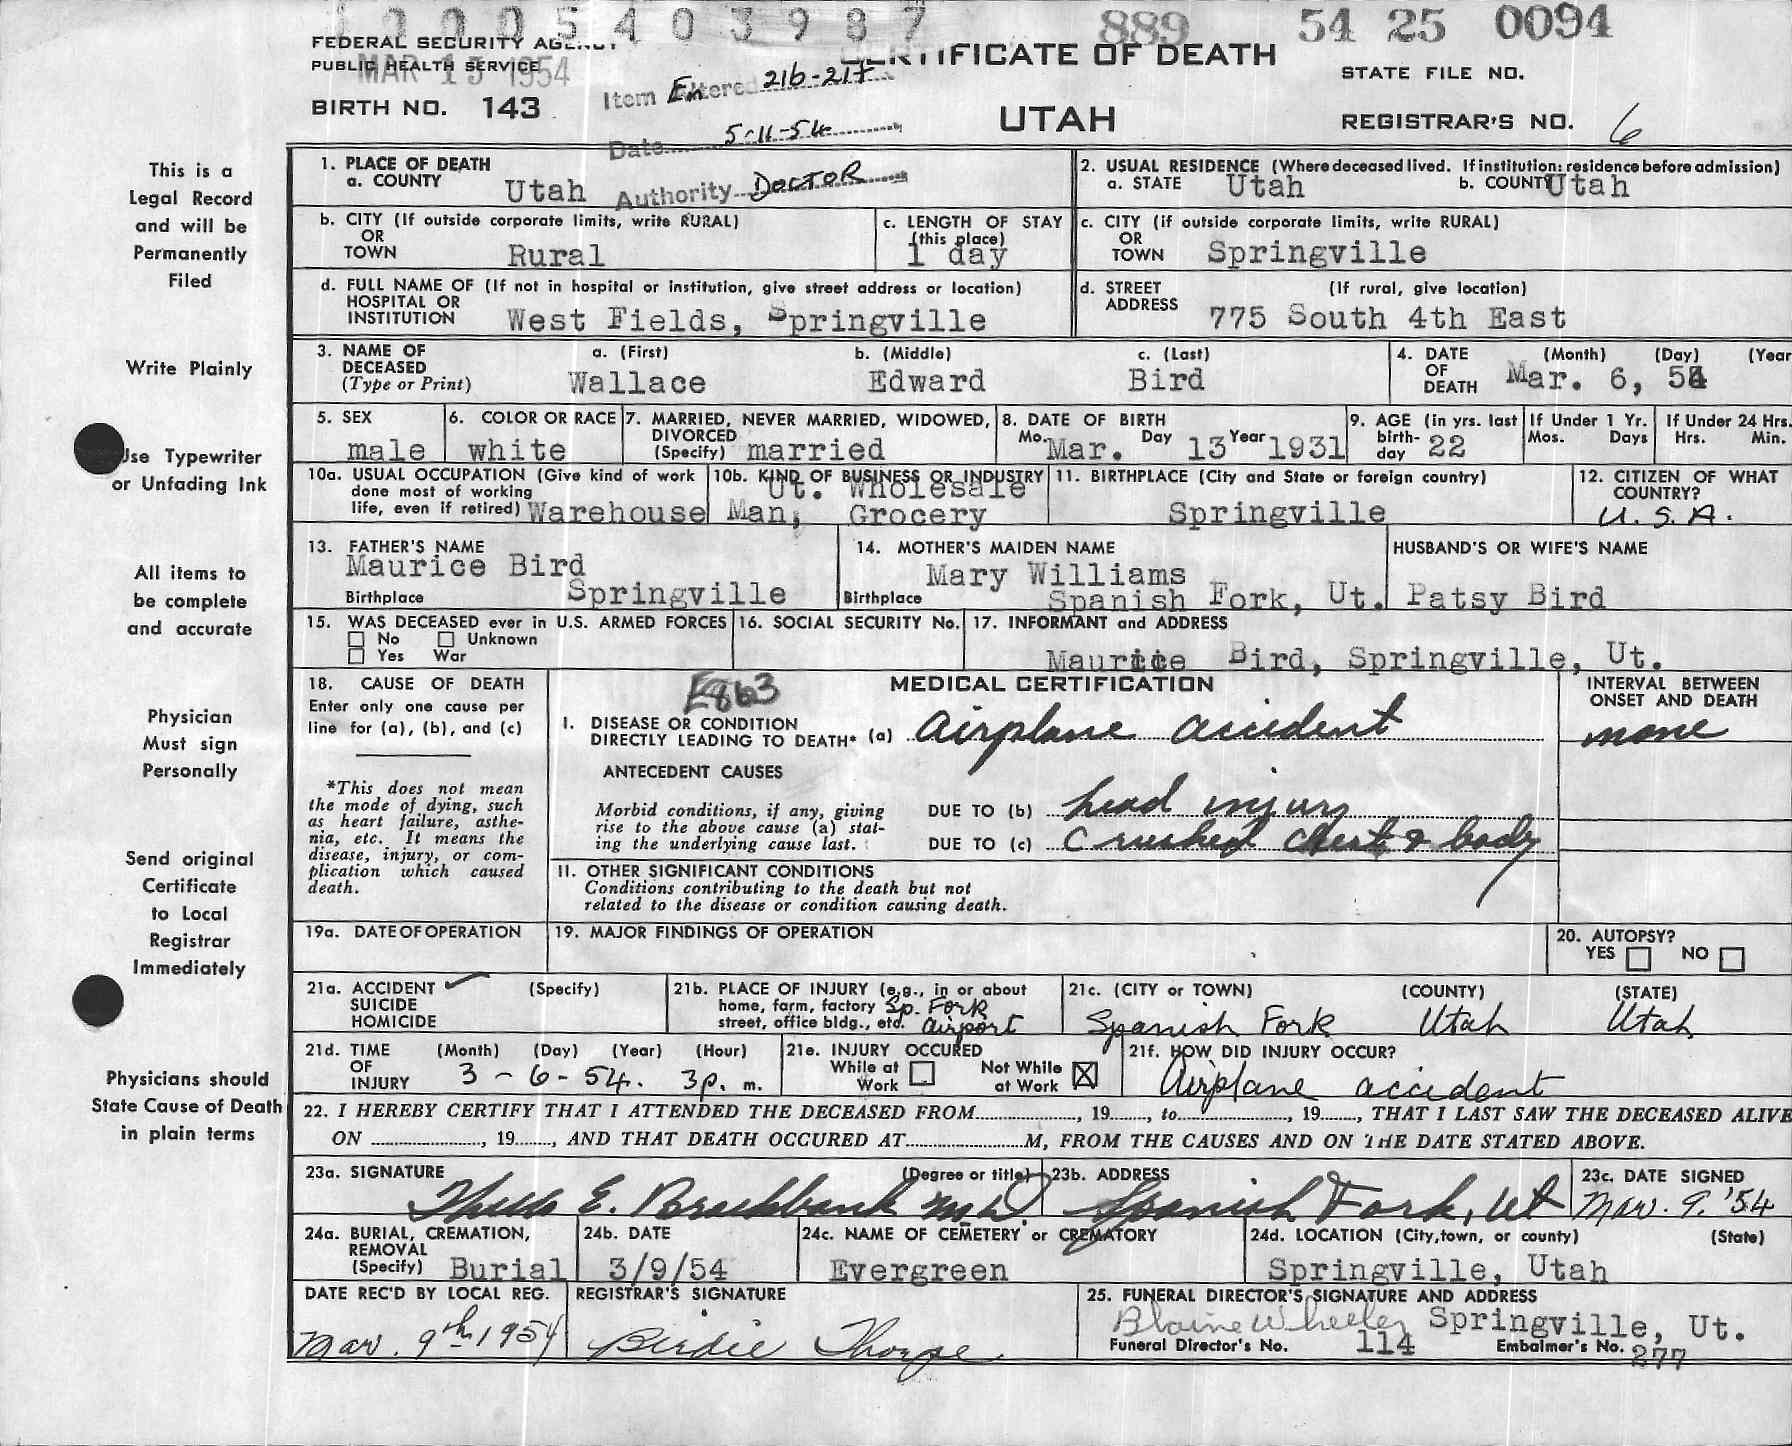 1 0 0 0 5 4 0 3 9 8 7 889 54 25 0094
FEDERAL SECURITY AGENCY
PUBLIC HEALTH SERVICE
MAR 15 1954
BIRTH NO. 143
Item Entered 21b-21f
Date 5-11-54
Authority DOCTOR
CERTIFICATE OF DEATH
UTAH
STATE FILE NO.
REGISTRAR'S NO. 6
This is a
Legal Record
and will be
Permanently
Filed
Write Plainly
Use Typewriter
or Unfading Ink
All items to
be complete
and accurate
Physician
Must sign
Personally
Send original
Certificate
to Local
Registrar
Immediately
Physicians should
State Cause of Death
in plain terms
1. PLACE OF DEATH
a. COUNTY Utah
2. USUAL RESIDENCE (Where deceased lived. If institution: residence before admission)
a. STATE Utah b. COUNTY Utah
b. CITY (If outside corporate limits, write RURAL)
OR
TOWN Rural
c. LENGTH OF STAY
(this place)
1 day
c. CITY (if outside corporate limits, write RURAL)
OR
TOWN Springville
d. FULL NAME OF (If not in hospital or institution, give street address or location)
HOSPITAL OR
INSTITUTION West Fields, Springville
d. STREET (If rural, give location)
ADDRESS 775 South 4th East
3. NAME OF a. (First) b. (Middle) c. (Last)
DECEASED
(Type or Print) Wallace Edward Bird
4. DATE (Month) (Day) (Year
OF
DEATH Mar. 6, 54
5. SEX
male
6. COLOR OR RACE
white
7. MARRIED, NEVER MARRIED, WIDOWED,
DIVORCED
(Specify) married
8. DATE OF BIRTH
Mo. Mar. Day 13 Year 1931
9. AGE (in yrs. last
birth-
day 22
If Under 1 Yr.
Mos. Days
If Under 24 Hrs.
Hrs. Min.
10a. USUAL OCCUPATION (Give kind of work
done most of working
life, even if retired) Warehouse Man,
10b. KIND OF BUSINESS OR INDUSTRY
Ut. Wholesale
Grocery
11. BIRTHPLACE (City and State or foreign country)
Springville
12. CITIZEN OF WHAT
COUNTRY?
U. S. A.
13. FATHER'S NAME
Maurice Bird
Birthplace Springville
14. MOTHER'S MAIDEN NAME
Mary Williams
Birthplace Spanish Fork, Ut.
HUSBAND'S OR WIFE'S NAME
Patsy Bird
15. WAS DECEASED ever in U.S. ARMED FORCES
No Unknown
Yes War
16. SOCIAL SECURITY No.
17. INFORMANT and ADDRESS
Maurice Bird, Springville, Ut.
18. CAUSE OF DEATH
Enter only one cause per
line for (a), (b), and (c)
*This does not mean
the mode of dying, such
as heart failure, asthe-
nia, etc. It means the
disease, injury, or com-
plication which caused
death.
E863
MEDICAL CERTIFICATION
INTERVAL BETWEEN
ONSET AND DEATH
I. DISEASE OR CONDITION
DIRECTLY LEADING TO DEATH* (a) airplane accident none
ANTECEDENT CAUSES
Morbid conditions, if any, giving
rise to the above cause (a) stat-
ing the underlying cause last.
DUE TO (b) head injury
DUE TO (c) Crushed chest & body
II. OTHER SIGNIFICANT CONDITIONS
Conditions contributing to the death but not
related to the disease or condition causing death.
19a. DATE OF OPERATION
19. MAJOR FINDINGS OF OPERATION
20. AUTOPSY?
YES NO
21a. ACCIDENT ✓ (Specify)
SUICIDE
HOMICIDE
21b. PLACE OF INJURY (e.g., in or about
home, farm, factory Sp. Fork
street, office bldg., etc. airport
21c. (CITY or TOWN) (COUNTY) (STATE)
Spanish Fork Utah Utah
21d. TIME (Month) (Day) (Year) (Hour)
OF
INJURY 3 - 6 - 54. 3 p. m.
21e. INJURY OCCURED
While at Not While
Work at Work
21f. HOW DID INJURY OCCUR?
Airplane accident
22. I HEREBY CERTIFY THAT I ATTENDED THE DECEASED FROM, 19, to, 19, THAT I LAST SAW THE DECEASED ALIVE
ON, 19, AND THAT DEATH OCCURED AT M, FROM THE CAUSES AND ON THE DATE STATED ABOVE.
23a. SIGNATURE (Degree or title)
E. Brockbank M.D.
23b. ADDRESS
Spanish Fork, Ut
23c. DATE SIGNED
Mar. 9. '54
24a. BURIAL, CREMATION,
REMOVAL
(Specify) Burial
24b. DATE
3/9/54
24c. NAME OF CEMETERY or CREMATORY
Evergreen
24d. LOCATION (City, town, or county) (State)
Springville, Utah
DATE REC'D BY LOCAL REG.
Mar. 9th 1954
REGISTRAR'S SIGNATURE
Birdie Thorpe
25. FUNERAL DIRECTOR'S SIGNATURE AND ADDRESS
Blaine Wheeler Springville, Ut.
Funeral Director's No. 114 Embalmer's No. 277